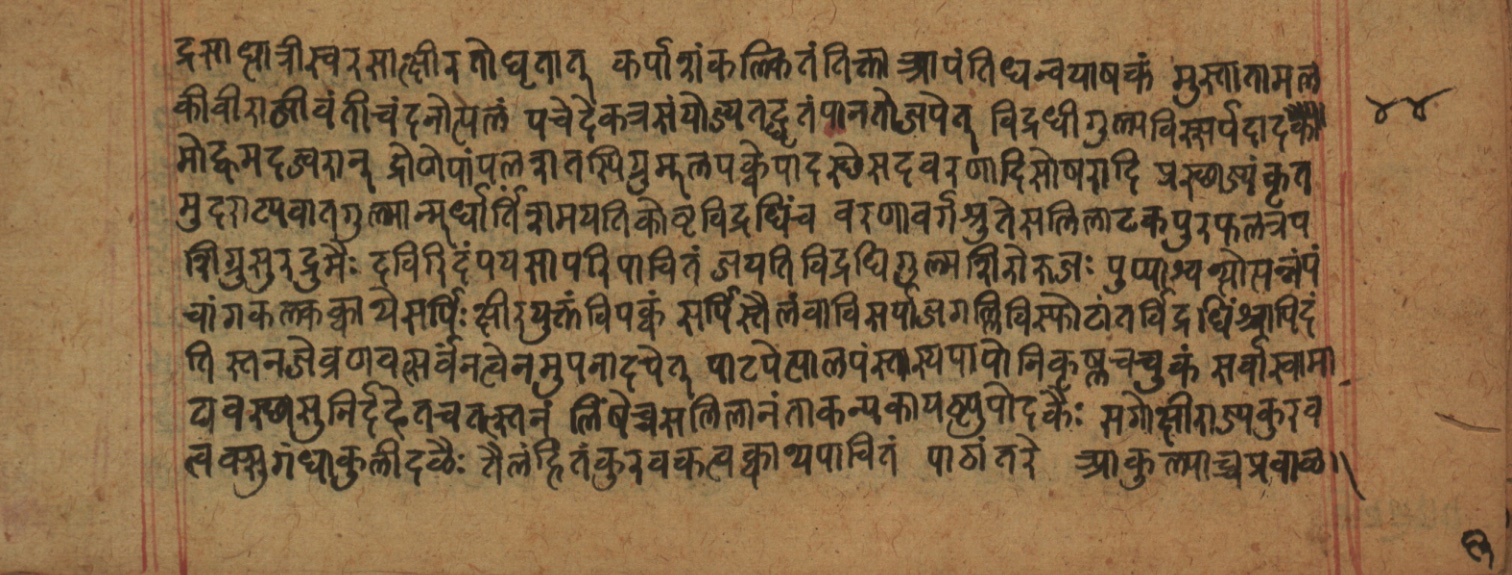 द्रसाधात्रीस्वरसात्क्षीरतोघृतात् कर्षांशंकल्कितंतिक्ता त्रापंतिधन्वयाषकं मुस्तातामल
कीवीराजीवंतीचंदनोत्पलं पचेदेकत्रसंयोज्यतद्घृतंपानतोजपेत् विद्रधीगुल्मविसर्पदाद
मोहमदज्वरान् द्रोणेपांपलशतस्पिग्रुमूलपक्वेपादस्छेसदवरणादिसोषरादि प्रस्छाज्यंकृत
मुदराट्यवातगुल्मान्मूर्धार्तिंशमयतिकोष्टंविद्रधिंच वरणावर्गश्रुतेसलिलाटकपुरफलत्रप
शिग्रुसुरद्रुमैः दविरिदंपयसापरिपाचितं जयतिविद्रधिगुल्मशिरोरुजः पुष्पाश्वभ्योसन्नंपं
चांगकल्कक्वाथेसर्पिः क्षीरयुक्तंविपक्वं सर्पिस्तैलंवाविसर्पाजगल्लिविस्फोटांतर्विद्रधिंश्चापिदं
ति स्तनजेव्रणवत्सर्वंनत्वेनमुपनादपेत् पाटपेत्पालपंस्तान्यपापोनिकृष्णचच्चुकं सर्वास्वामा
द्यवस्छासुनिर्ददेतचतत्स्तनं लिंषेच्चसलिलानंताकन्यकायष्ट्युपोदकैः सगोक्षीराज्यकुरव
त्वक्सुगंधाकुलीदळैः तैलंहितंकुरवकत्वक्वाथ्यपाचितं पाठांतरे आकुल्याच्चप्रवाळ॥
४४